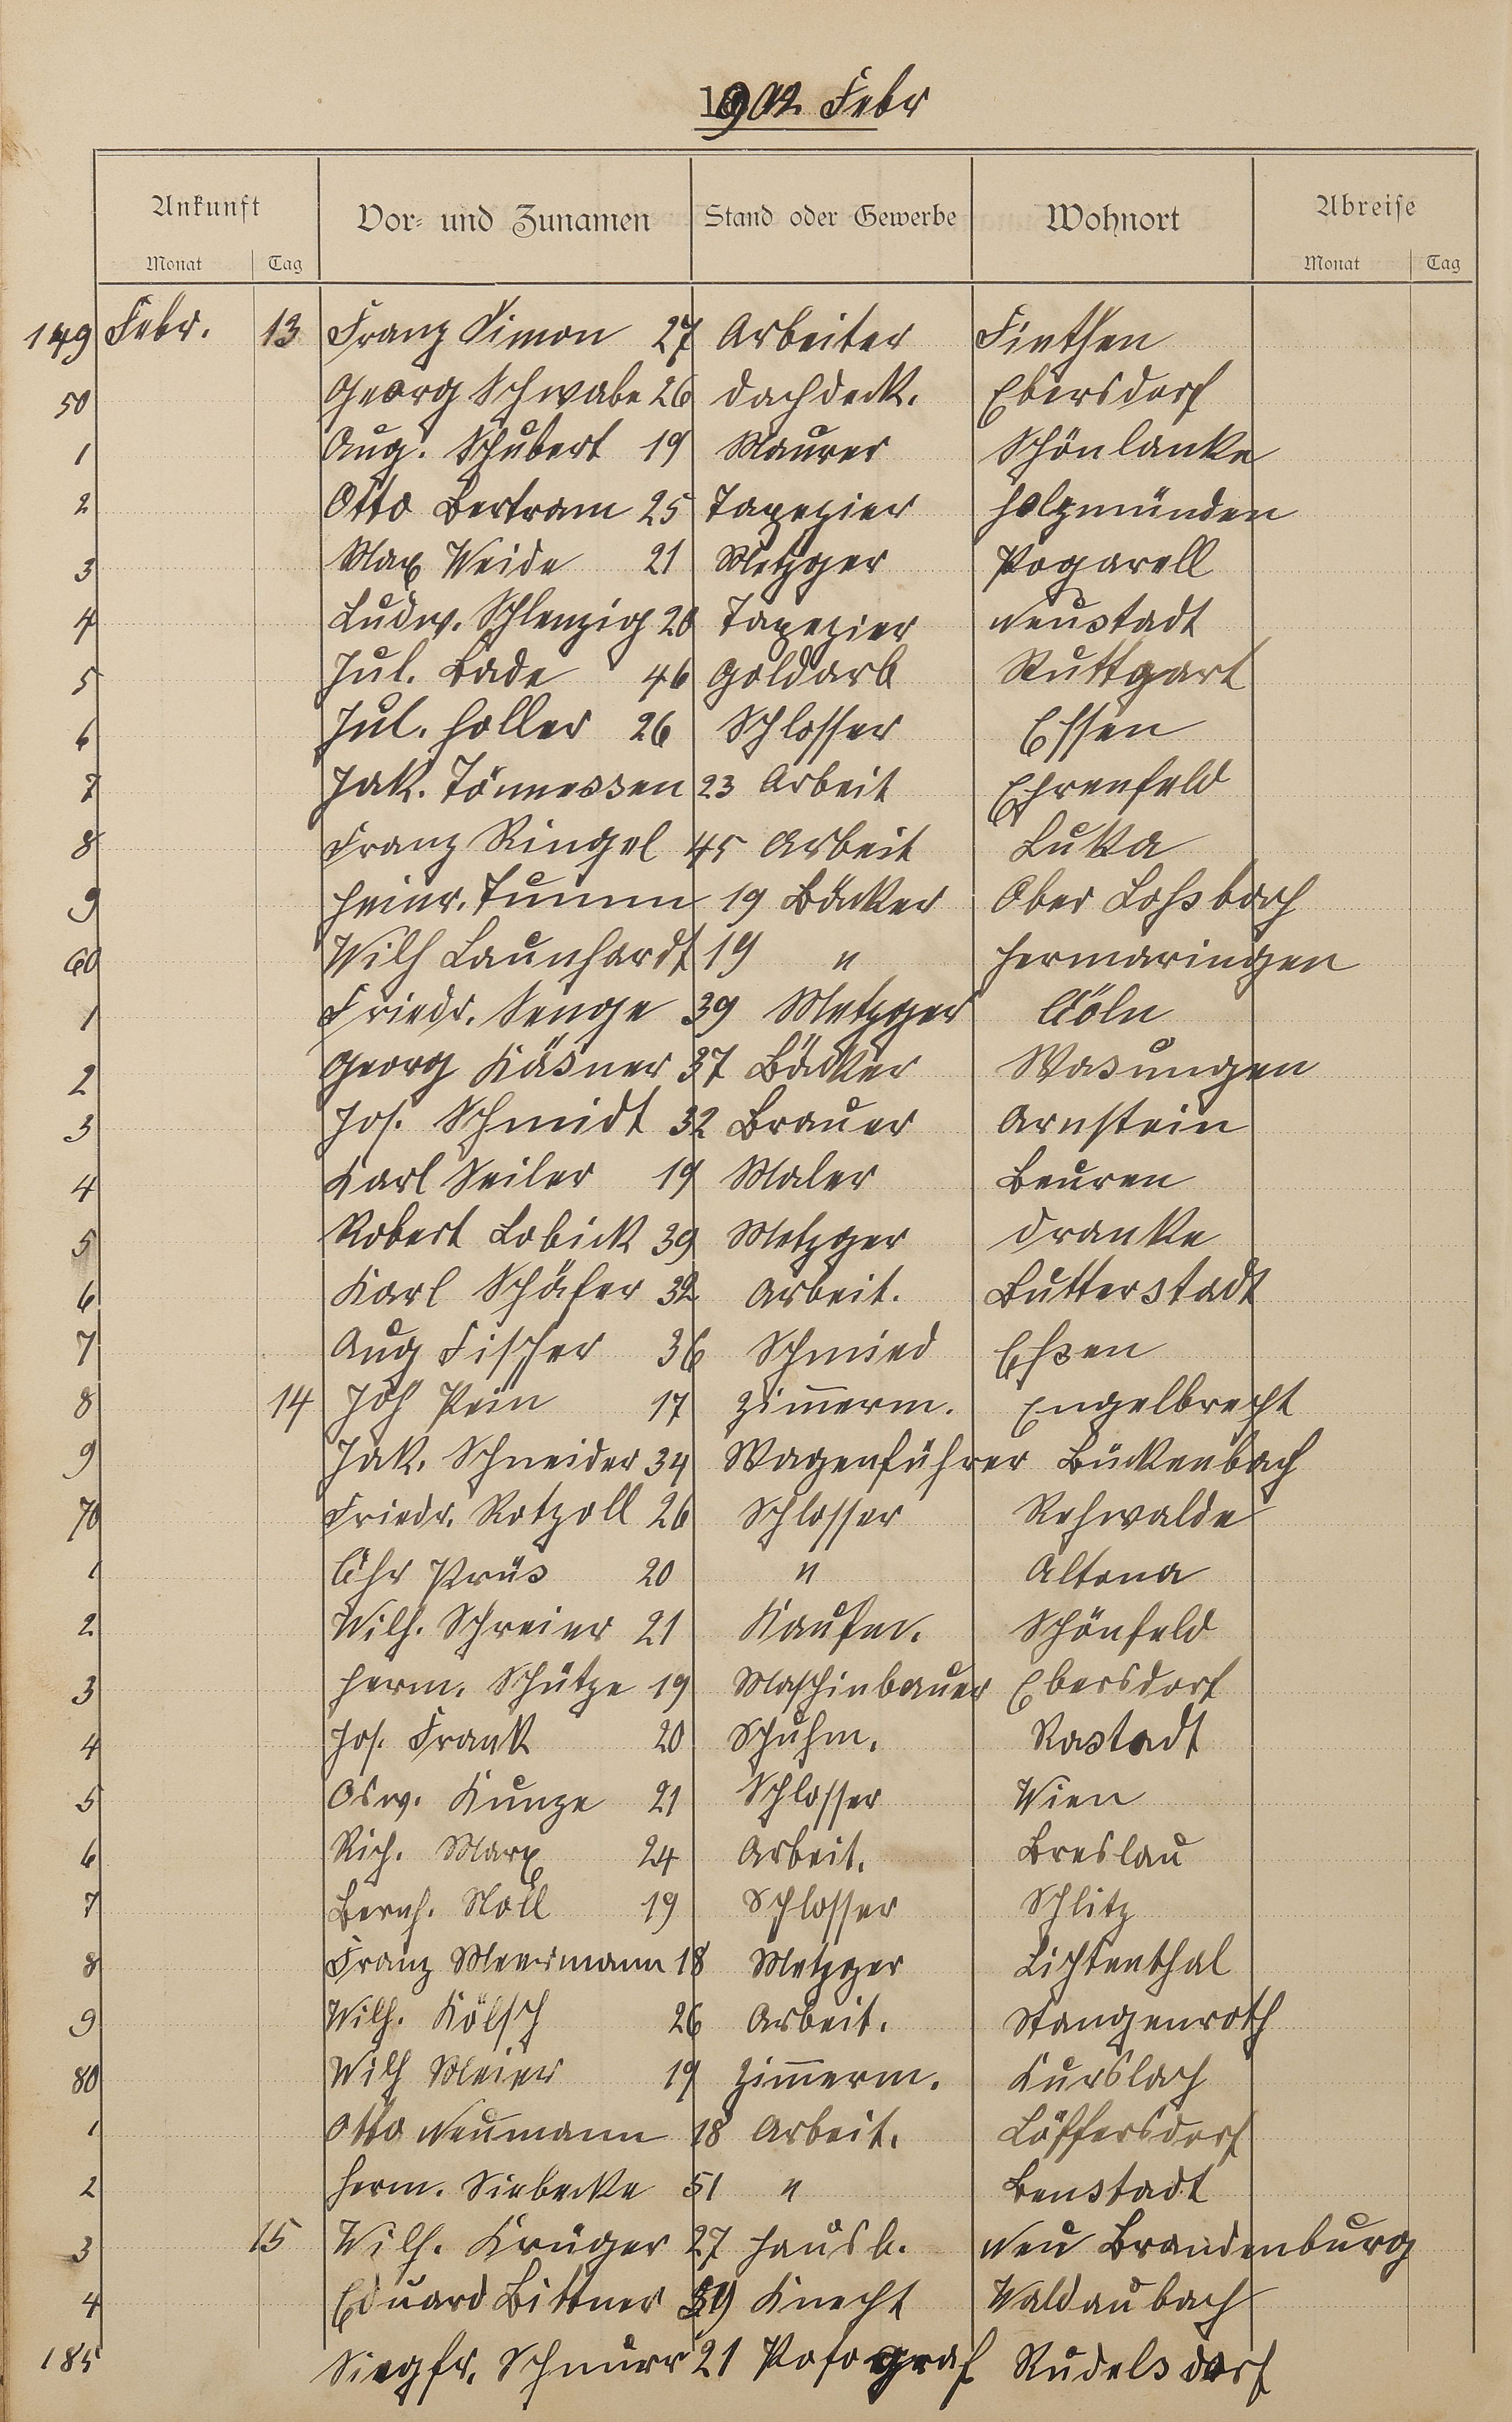 1902 Febr
Ankunft Vor- und Zunamen Stand oder Gewerbe Wohnort Abreise
Monat Tag Monat Tag
149 Febr. 13 Franz Simon 27 Arbeiter Finthen
50 Georg Schwabe 26 Dachdeck. Ebersdorf
1 Aug. Schubert 19 Maurer Schönlanke
2 Otto Bertram 25 Tapezier Holzmünden
3 Max Weide 21 Metzger Pogarell
4 Ludw. Schlenzig 20 Tapezier Neustadt
5 Jul. Bade 46 Goldarb Stuttgart
6 Jul. Holler 26 Schlosser Essen
7 Jak. Tönnessen 23 Arbeit Ehrenfeld
8 Franz Ringel 45 Arbeit Luka
9 Heinr. Tumm 19 Bäcker Ober Lossbach
60 Wilh Launhardt 19 " Hermaringen
1 Friedr. Senge 39 Metzger Cöln
2 Georg Käsner 37 Bäcker Wasungen
3 Jos. Schmidt 32 Brauer Arnstein
4 Karl Seiler 19 Maler Beuren
5 Robert Lobick 39 Metzger Dranke
6 Karl Schäfer 32 Arbeit. Butterstadt
7 Aug Fischer 36 Schmied Essen
8 14 Joh Pein 17 Zimmerm. Engelbrecht
9 Jak. Schneider 34 Wagenführer Bückenbach
70 Friedr. Rotzoll 26 Schlosser Rehwalde
1 Chr Prüs 20 " Altona
2 Wilh. Schreier 21 Kaufm. Schönfeld
3 Herm. Schütze 19 Maschinbauer Ebersdorf
4 Jos. Frank 20 Schuhm. Rastadt
5 Osw. Kunze 21 Schlosser Wien
6 Rich. Marx 24 Arbeit. Breslau
7 Bernh. Noll 19 Schlosser Schlitz
8 Franz Meermann 18 Metzger Lichtenthal
9 Wilh. Kölsch 26 Arbeit. Stangenroth
80 Wilh Meier 19 Zimmerm. Kurslach
1 Otto Neumann 18 Arbeit. Löffersdorf
2 Herm. Siebecke 51 " Benstadt
3 15 Wilh. Krüger 27 Hausb. Neu Brandenburg
4 Eduard Bittner 39 Knecht Waldaubach
185 Siegfr. Schnurr 21 Fotograf Rudelsdorf